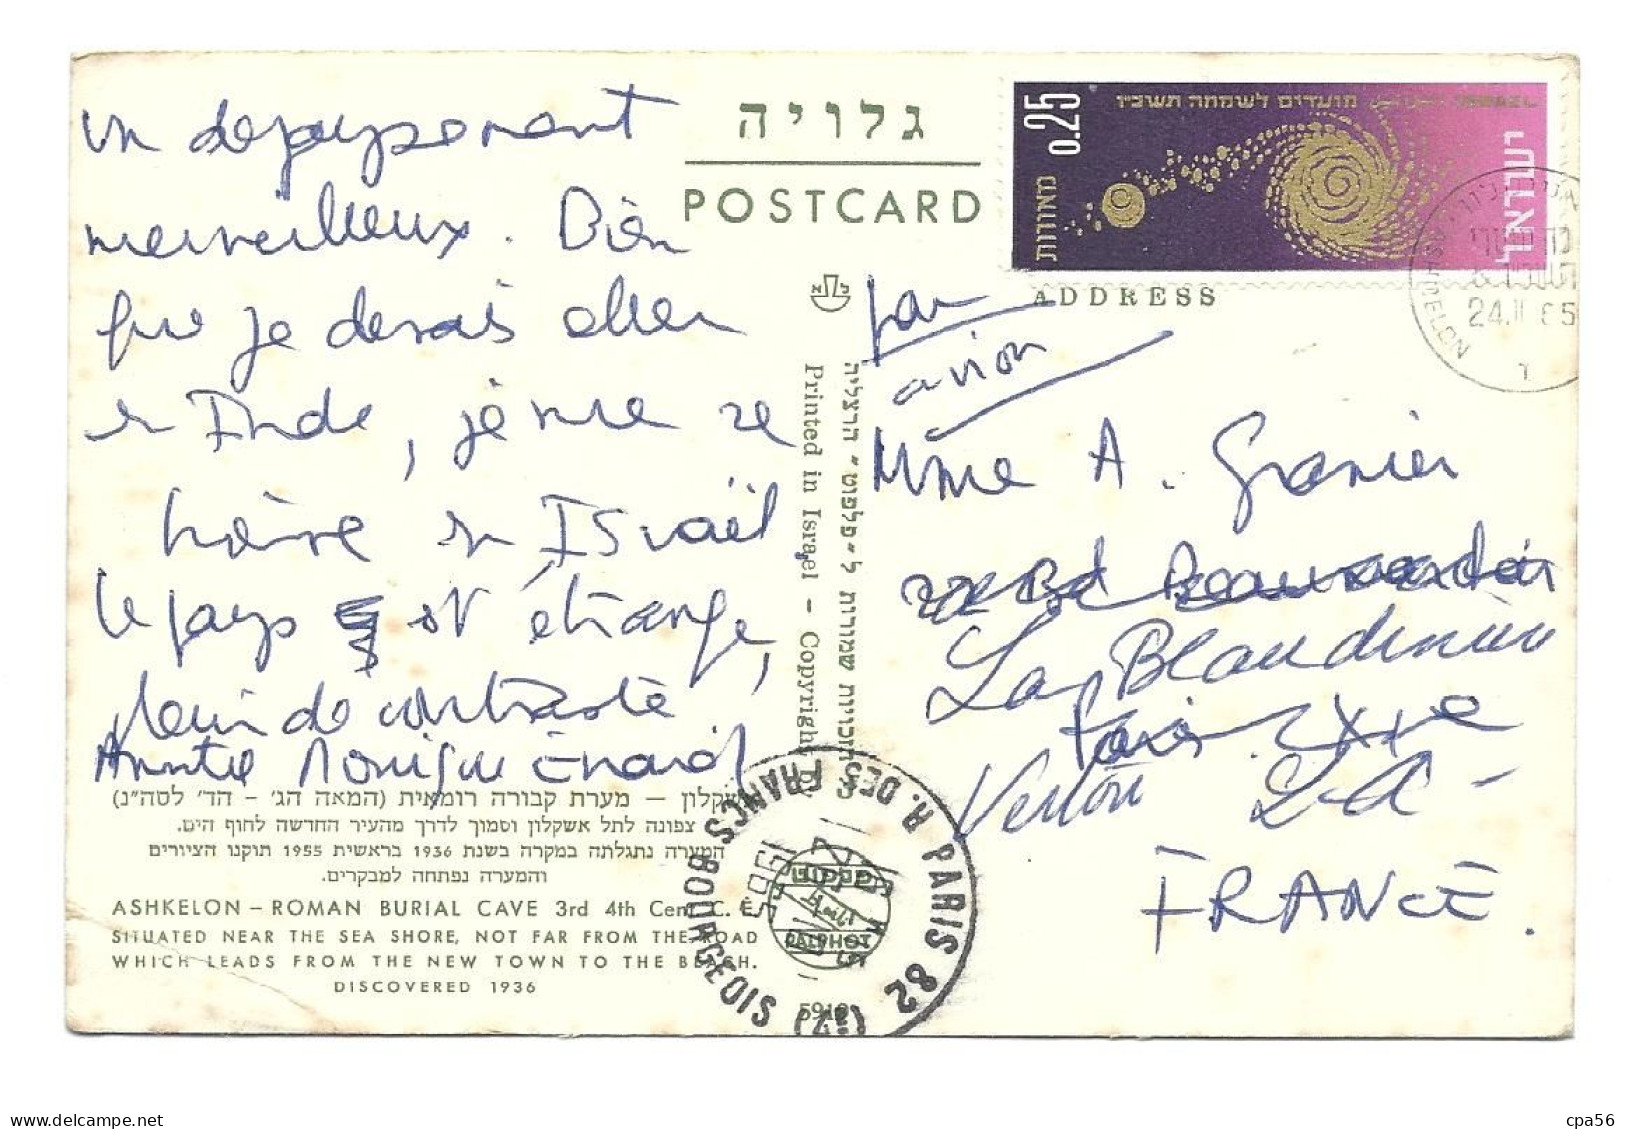 un depaysement
merveilleux. Bien
que je devais aller
en Inde, je me re
trouve en Israël
le pays est étrange,
plein de contraste
Monique
גלויה
POSTCARD
0.25
מאורות
מועדים לשמחה תשכ״ו
ISRAEL
ישראל
ASHQELON
24.11 65
ADDRESS
par
avion
Mme A. Granier
22 Bd
La Blaudinière
Paris XXe
Vertou L-A-
FRANCE.
Printed in Israel – Copyright by
אשקלון — מערת קבורה רומאית (המאה הג׳ – הד׳ לסה״נ)
צפונה לתל אשקלון וסמוך לדרך מהעיר החדשה לחוף הים.
המערה נתגלתה במקרה בשנת 1936 בראשית 1955 תוקנו הציורים
והמערה נפתחה למבקרים.
ASHKELON – ROMAN BURIAL CAVE 3rd 4th Cent. C. E.
SITUATED NEAR THE SEA SHORE, NOT FAR FROM THE ROAD
WHICH LEADS FROM THE NEW TOWN TO THE BEACH.
DISCOVERED 1936
PALPHOT
5919
PARIS 82 (17) R. DES FRANCS BOURGEOIS
1965
www.delcampe.net
cpa56